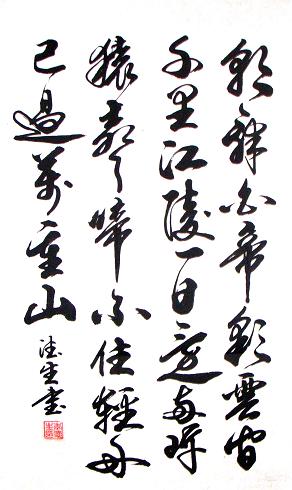 朝辭白帝彩雲間
千里江陵一日還兩岸
猿聲啼不住輕舟
已過萬重山
德生書